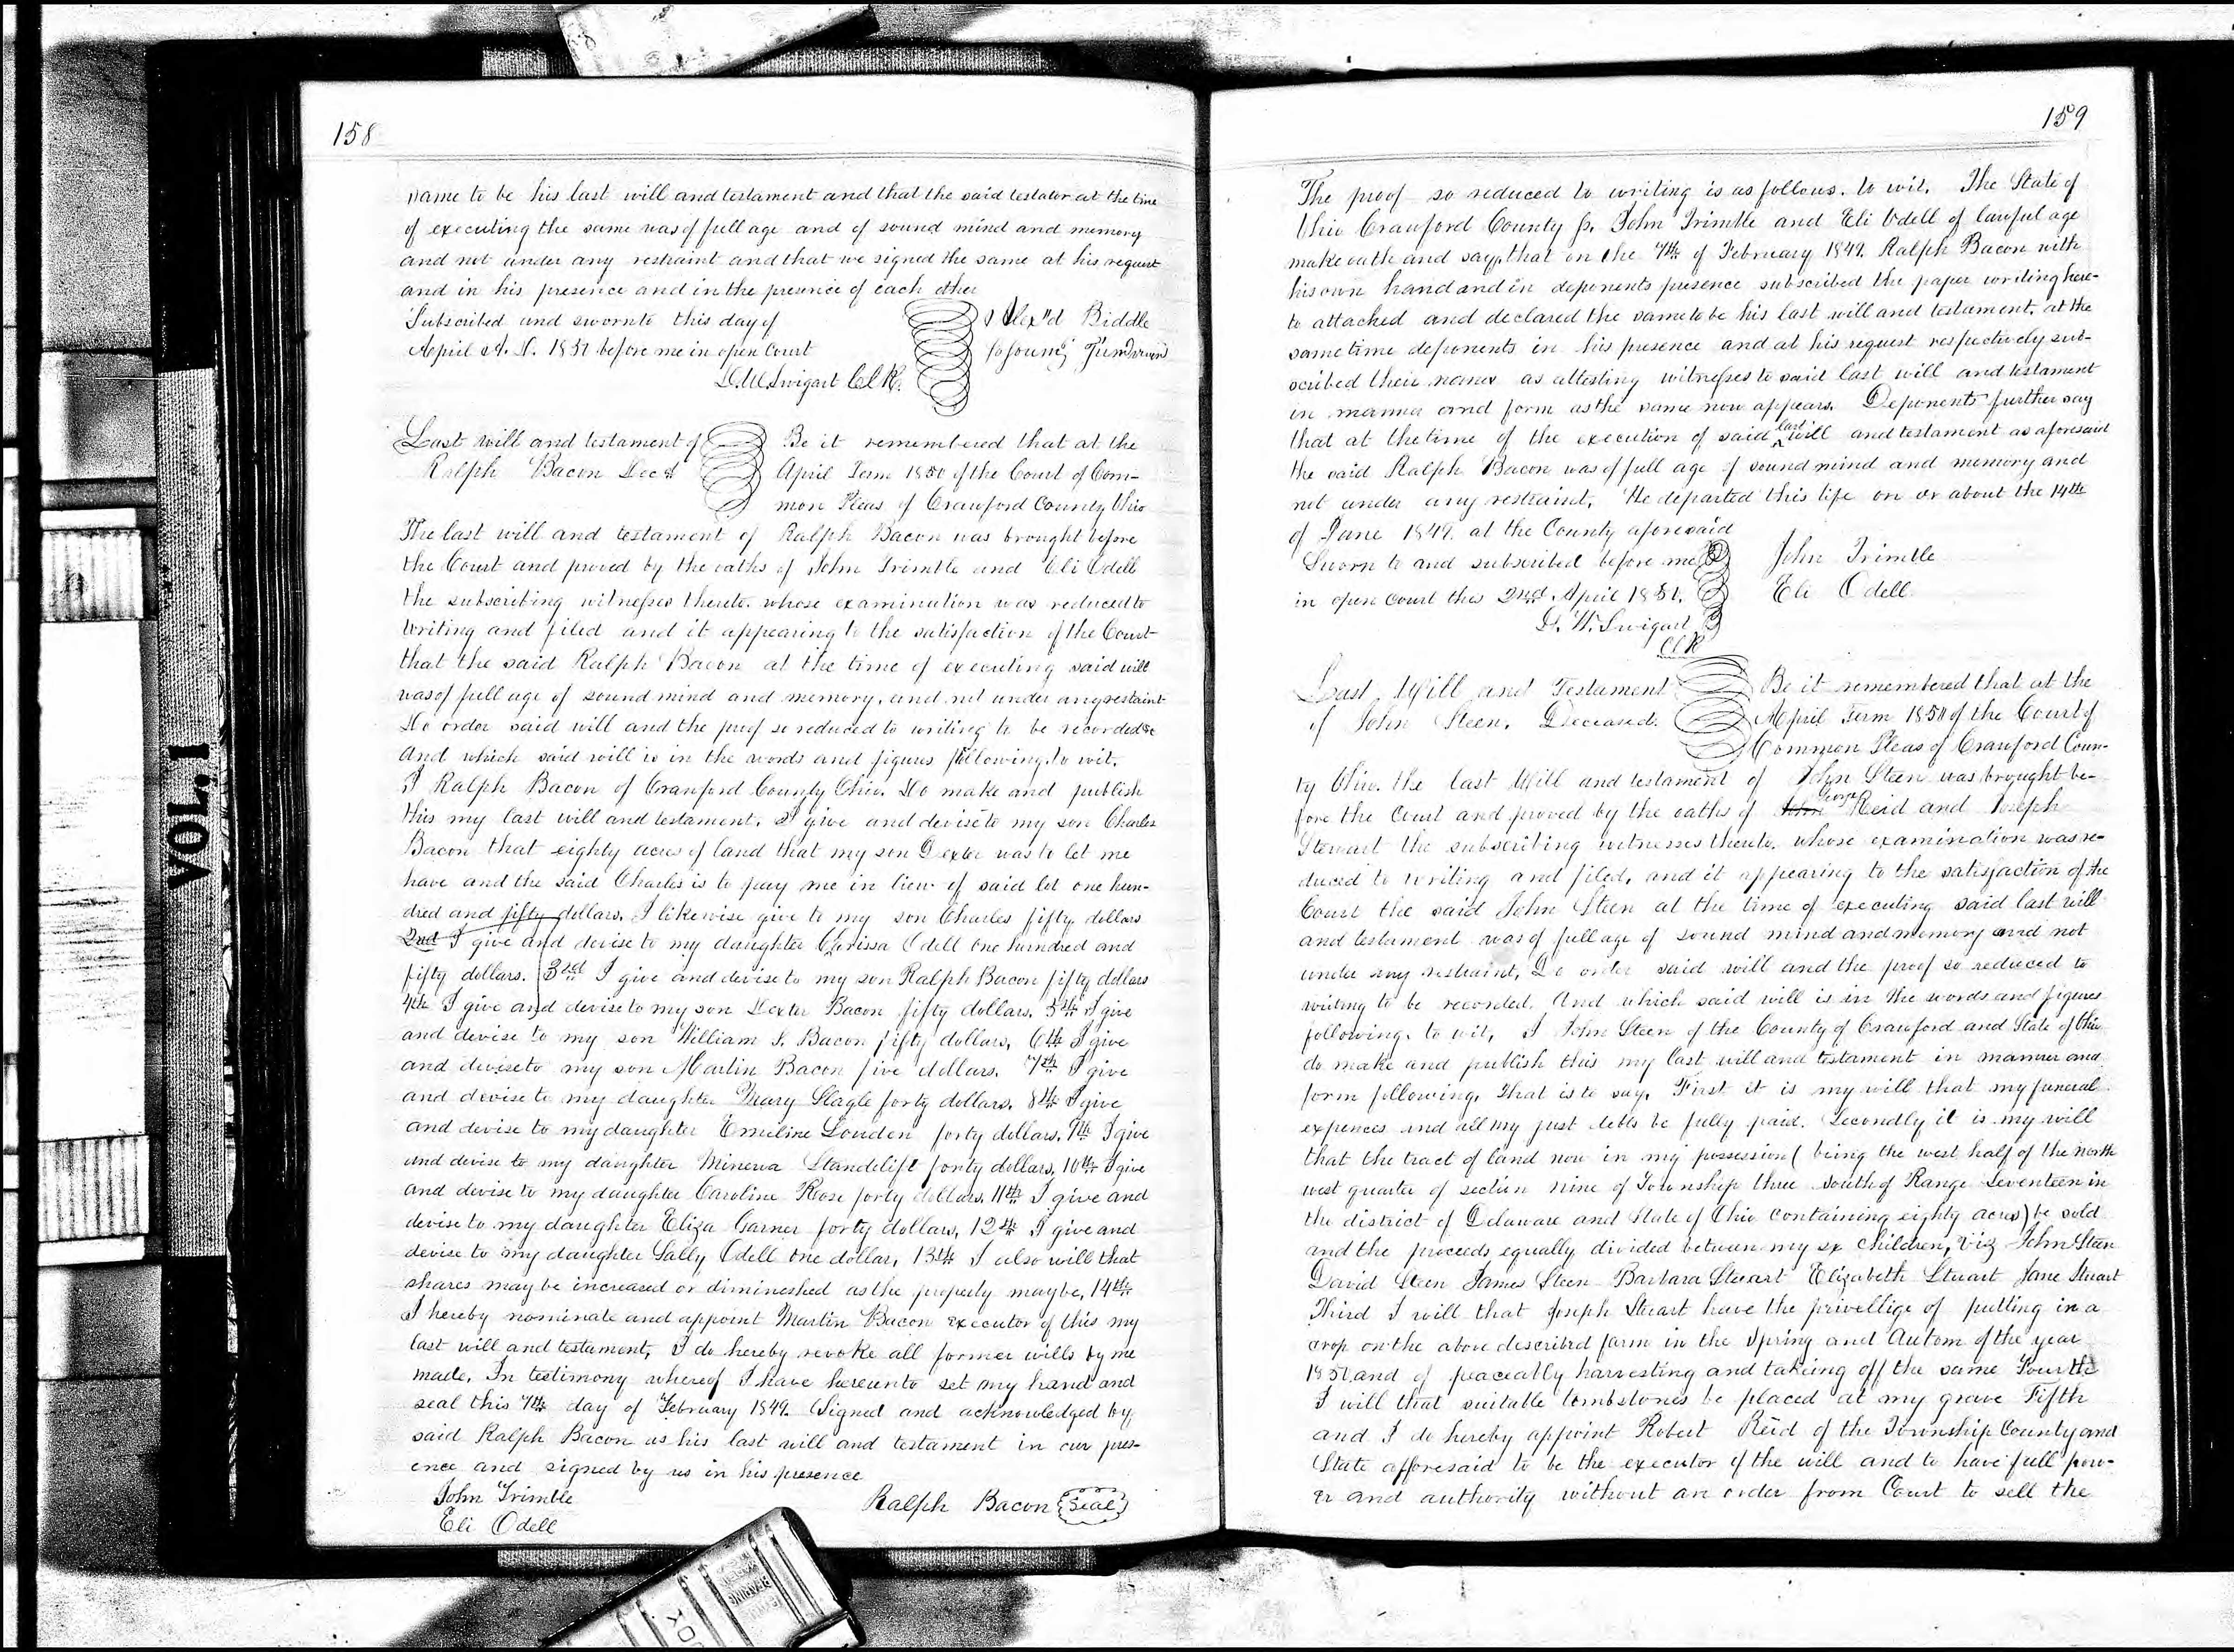 158
same to be his last will and testament and that the said testator at the time
of executing the same was of full age and of sound mind and memory
and not under any restraint and that we signed the same at his request
and in his presence and in the presence of each other
Subscribed and sworn to this day of
April A. D. 1851 before me in open Court
D. W. Swigart Clk.
Alex"d Biddle
Last will and testament of
Ralph Bacon Decd
Be it remembered that at the
April Term 1850 of the Court of Com-
mon Pleas of Crawford County Ohio
The last will and testament of Ralph Bacon was brought before
the Court and proved by the oaths of John Trimble and Eli Odell
the subscribing witnesses thereto. whose examination was reduced to
writing and filed and it appearing to the satisfaction of the Court
that the said Ralph Bacon at the time of executing said will
was of full age of sound mind and memory, and not under any restaint
Do order said will and the proof so reduced to writing to be recorded
And which said will is in the words and figures following. to wit.
I Ralph Bacon of Crawford County Ohio. Do make and publish
this my last will and testament. I give and devise to my son Charles
Bacon that eighty acres of land that my son Dexter was to let me
have and the said Charles is to pay me in lieu of said lot one hun-
dred and fifty dollars. I likewise give to my son Charles fifty dollars
2nd I give and devise to my daughter Clarissa Odell one hundred and
fifty dollars. 3rd I give and devise to my son Ralph Bacon fifty dollars
4th I give and devise to my son Dexter Bacon fifty dollars. 5th I give
and devise to my son William S. Bacon fifty dollars, 6th I give
and devise to my son Martin Bacon five dollars. 7th I give
and devise to my daughter Mary Slagle forty dollars. 8th I give
and devise to my daughter Emeline Louden forty dollars. 9th I give
and devise to my daughter Minerva Standelift forty dollars, 10th I give
and devise to my daughter Caroline Rose forty dollars. 11th I give and
devise to my daughter Eliza Garner forty dollars, 12th I give and
devise to my daughter Sally Odell one dollar, 13th I also will that
shares may be increased or dimineshed as the property may be, 14th
I hereby nominate and appoint Martin Bacon executor of this my
last will and testament, I do hereby revoke all former wills by me
made, In testimony whereof I have hereunto set my hand and
seal this 7th day of February 1849. Signed and acknowledged by
said Ralph Bacon as his last will and testament in our pres-
ence and signed by us in his presence
John Trimble
Eli Odell
Ralph Bacon Seal
159
The proof so reduced to writing is as follows. to wit. The State of
Ohio Crawford County ss. John Trimble and Eli Odell of lawful age
make oath and say, that on the 7th of February 1849. Ralph Bacon with
his own hand and in deponents presence subscribed the paper writing here-
to attached and declared the same to be his last will and testament. at the
same time deponents in his presence and at his request respectively sub-
scribed their names as attesting witnesses to said last will and testament
in manner and form as the same now appears. Deponents further say
that at the time of the execution of said last will and testament as aforesaid
the said Ralph Bacon was of full age of sound mind and memory and
not under any restraint. He departed this life on or about the 14th
of June 1849. at the County aforesaid
Sworn to and subscribed before me
in open court this 2nd. April 1851.
D. W. Swigart
Clk
John Trimble
Eli Odell
Last Will and Testament
of John Steen. Deceased.
Be it remembered that at the
April Term 1851 of the Court of
Common Pleas of Crawford Coun-
ty Ohio. the last Will and testament of John Steen was brought be-
fore the Court and proved by the oaths of John George Reid and Joseph
Stewart the subscribing witnesses thereto. whose examination was re-
duced to writing and filed, and it appearing to the satisfaction of the
Court the said John Steen at the time of executing said last will
and testament was of full age of sound mind and memory and not
under any restraint, Do order said will and the proof so reduced to
writing to be recorded. And which said will is in the words and figures
following. to wit, I John Steen of the County of Crawford and State of Ohio
do make and publish this my last will and testament in manner and
form following. that is to say. First it is my will that my funeral
expences and all my just debts be fully paid. Secondly it is my will
that the tract of land now in my possession (being the west half of the north
west quarter of section nine of Township three south of Range Seventeen in
the district of Delaware and State of Ohio containing eighty acres) be sold
and the proceeds equally divided between my six children, viz John Steen
David Steen James Steen Barbara Stuart Elizabeth Stuart Jane Stuart
Third I will that Joseph Stuart have the privellige of putting in a
crop on the above described farm in the Spring and Autom of the year
1851 and of peaceably harvesting and takeing off the same Fourth
I will that suitable tombstones be placed at my grave Fifth
and I do hereby appoint Robert Reid of the Township County and
State afforesaid to be the executor of the will and to have full pow-
er and authority without an order from Court to sell the
VOL. 1